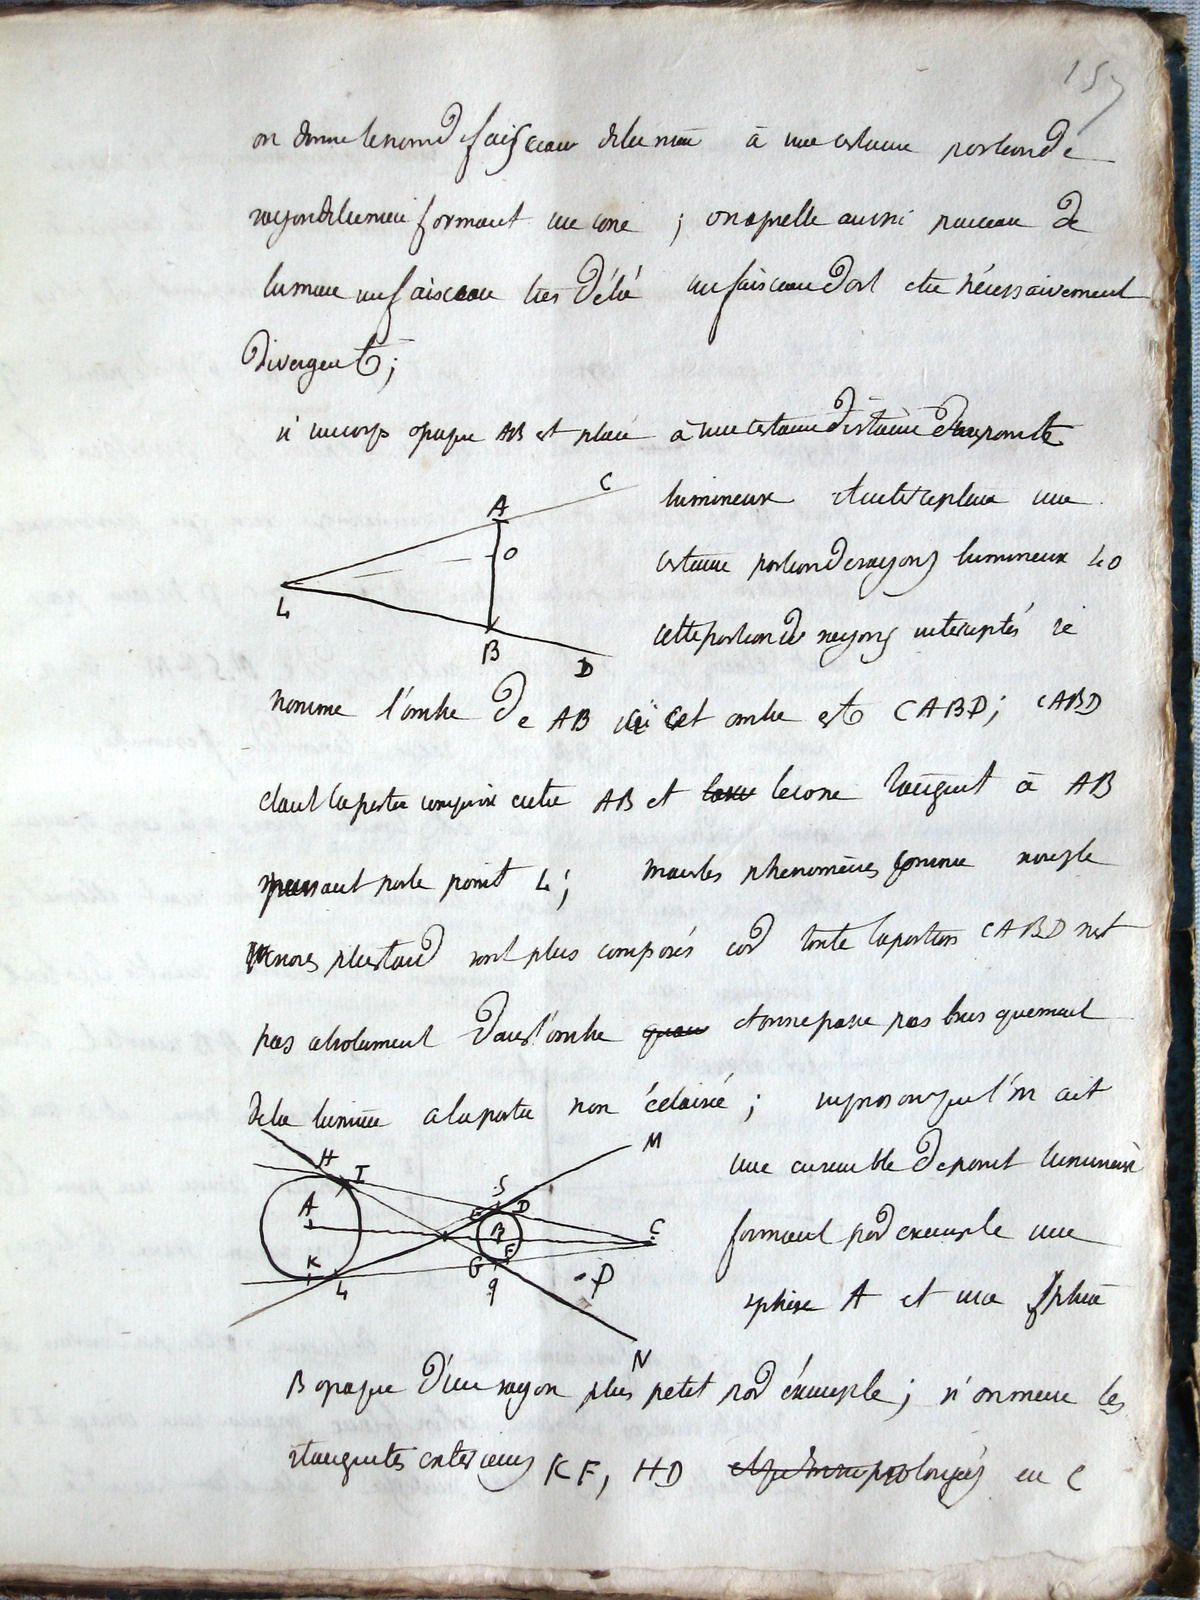 157
on donne le nom d faisceau de lumiere à une certaine portion de
rayon de lumiere formant un cone ; on apelle aussi pinceau de
lumiere un faisceau tres délié un faisceau doit etre nécessairement
divergent ;
si un corps opaque AB est placé à une certaine distance d'un point
lumineux et intercepte une
certaine portion de rayons lumineux LO
cette portion de rayons interceptés se
nomme l'ombre de AB ici cet ombre est CABD ; CABD
etant la partie comprise entre AB et le cone tangent à AB
passant par le point L ; mais les phenomènes comme nous le
verrons plus tard sont plus composés car toute la portion CABD n'est
pas absolument dans l'ombre et on ne passe pas brusquement
de la lumiere a la partie non éclairée ; supposons que l'on ait
une ensemble de point lumineux
formant par exemple une
sphère A et une sphère
B opaque d'un rayon plus petit par éxemple ; si on mene les
tangentes exterieurs KF, HD prolongés en C
C
A
O
L
B
D
H
I
M
S
E
D
A
B
C
K
L
G
F
q
P
N